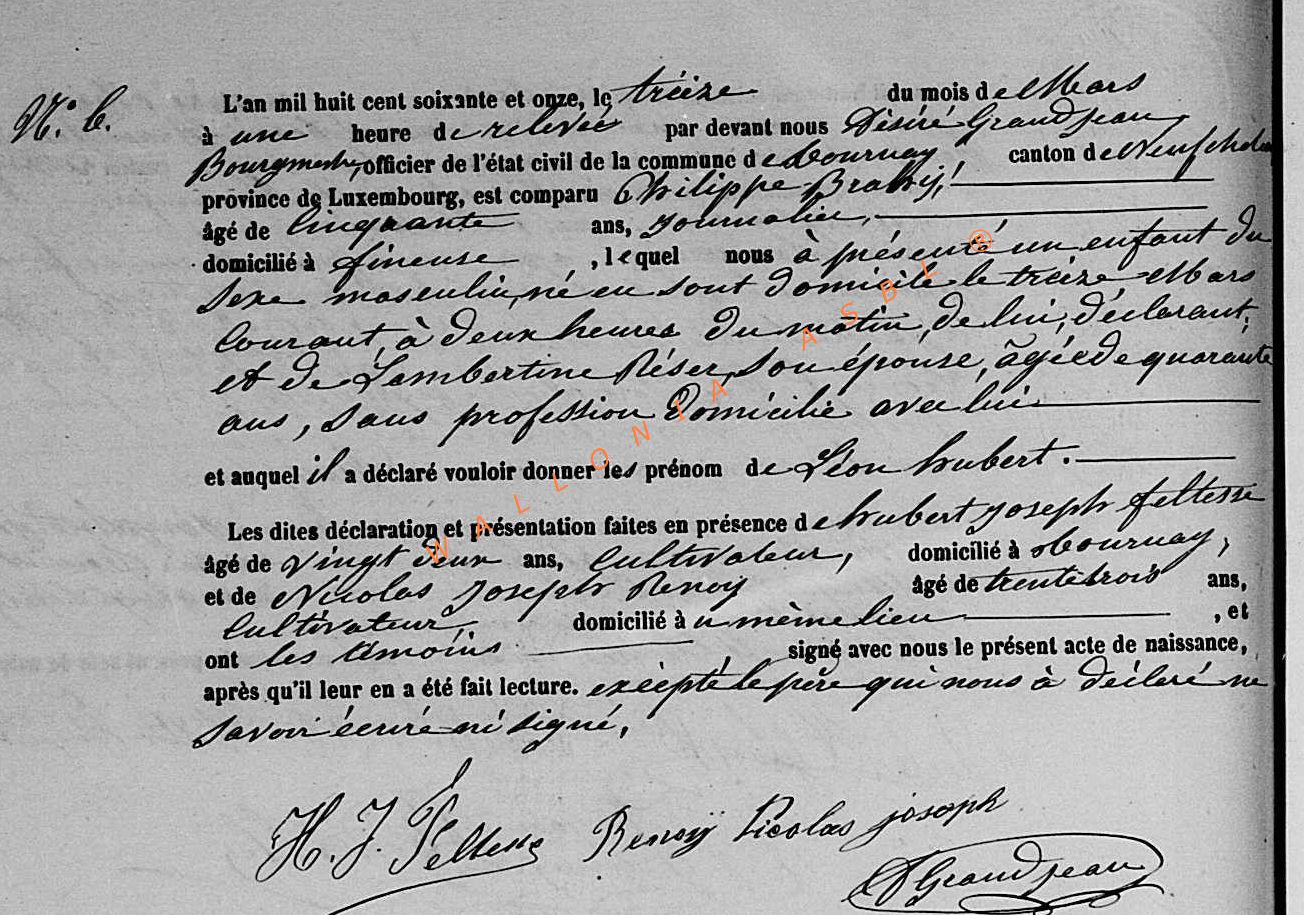 N° 6.
L'an mil huit cent soixante et onze, le treize du mois de Mars
à une heure de relevée par devant nous Désiré Grandjean
Bourgmestre, officier de l'état civil de la commune de Tournay, canton de Neufchateau
province de Luxembourg, est comparu Philippe
âgé de Cinquante ans, Journalier,
domicilié à fineuse, lequel nous à présenté un enfant du
sexe masculin, né en sont domicile le treize Mars
courant, à deux heures du matin, de lui, déclarant,
et de Lambertine Réser, son épouse, âgée de quarante
ans, sans profession domicilié avec lui
et auquel il a déclaré vouloir donner les prénom de Léon hubert.
Les dites déclaration et présentation faites en présence de hubert joseph feltesse
âgé de vingt deux ans, Cultivateur, domicilié à Tournay,
et de Nicolas Joseph Renoy âgé de trente trois ans,
Cultivateur, domicilié à u même lieu , et
ont les témoins signé avec nous le présent acte de naissance,
après qu'il leur en a été fait lecture. excèpté le père qui nous à déclaré ne
savoir écrire ni signé,
H. J. Feltesse Renoÿ Nicolas joseph
DGrandjean
WALLONIA ASBL ®